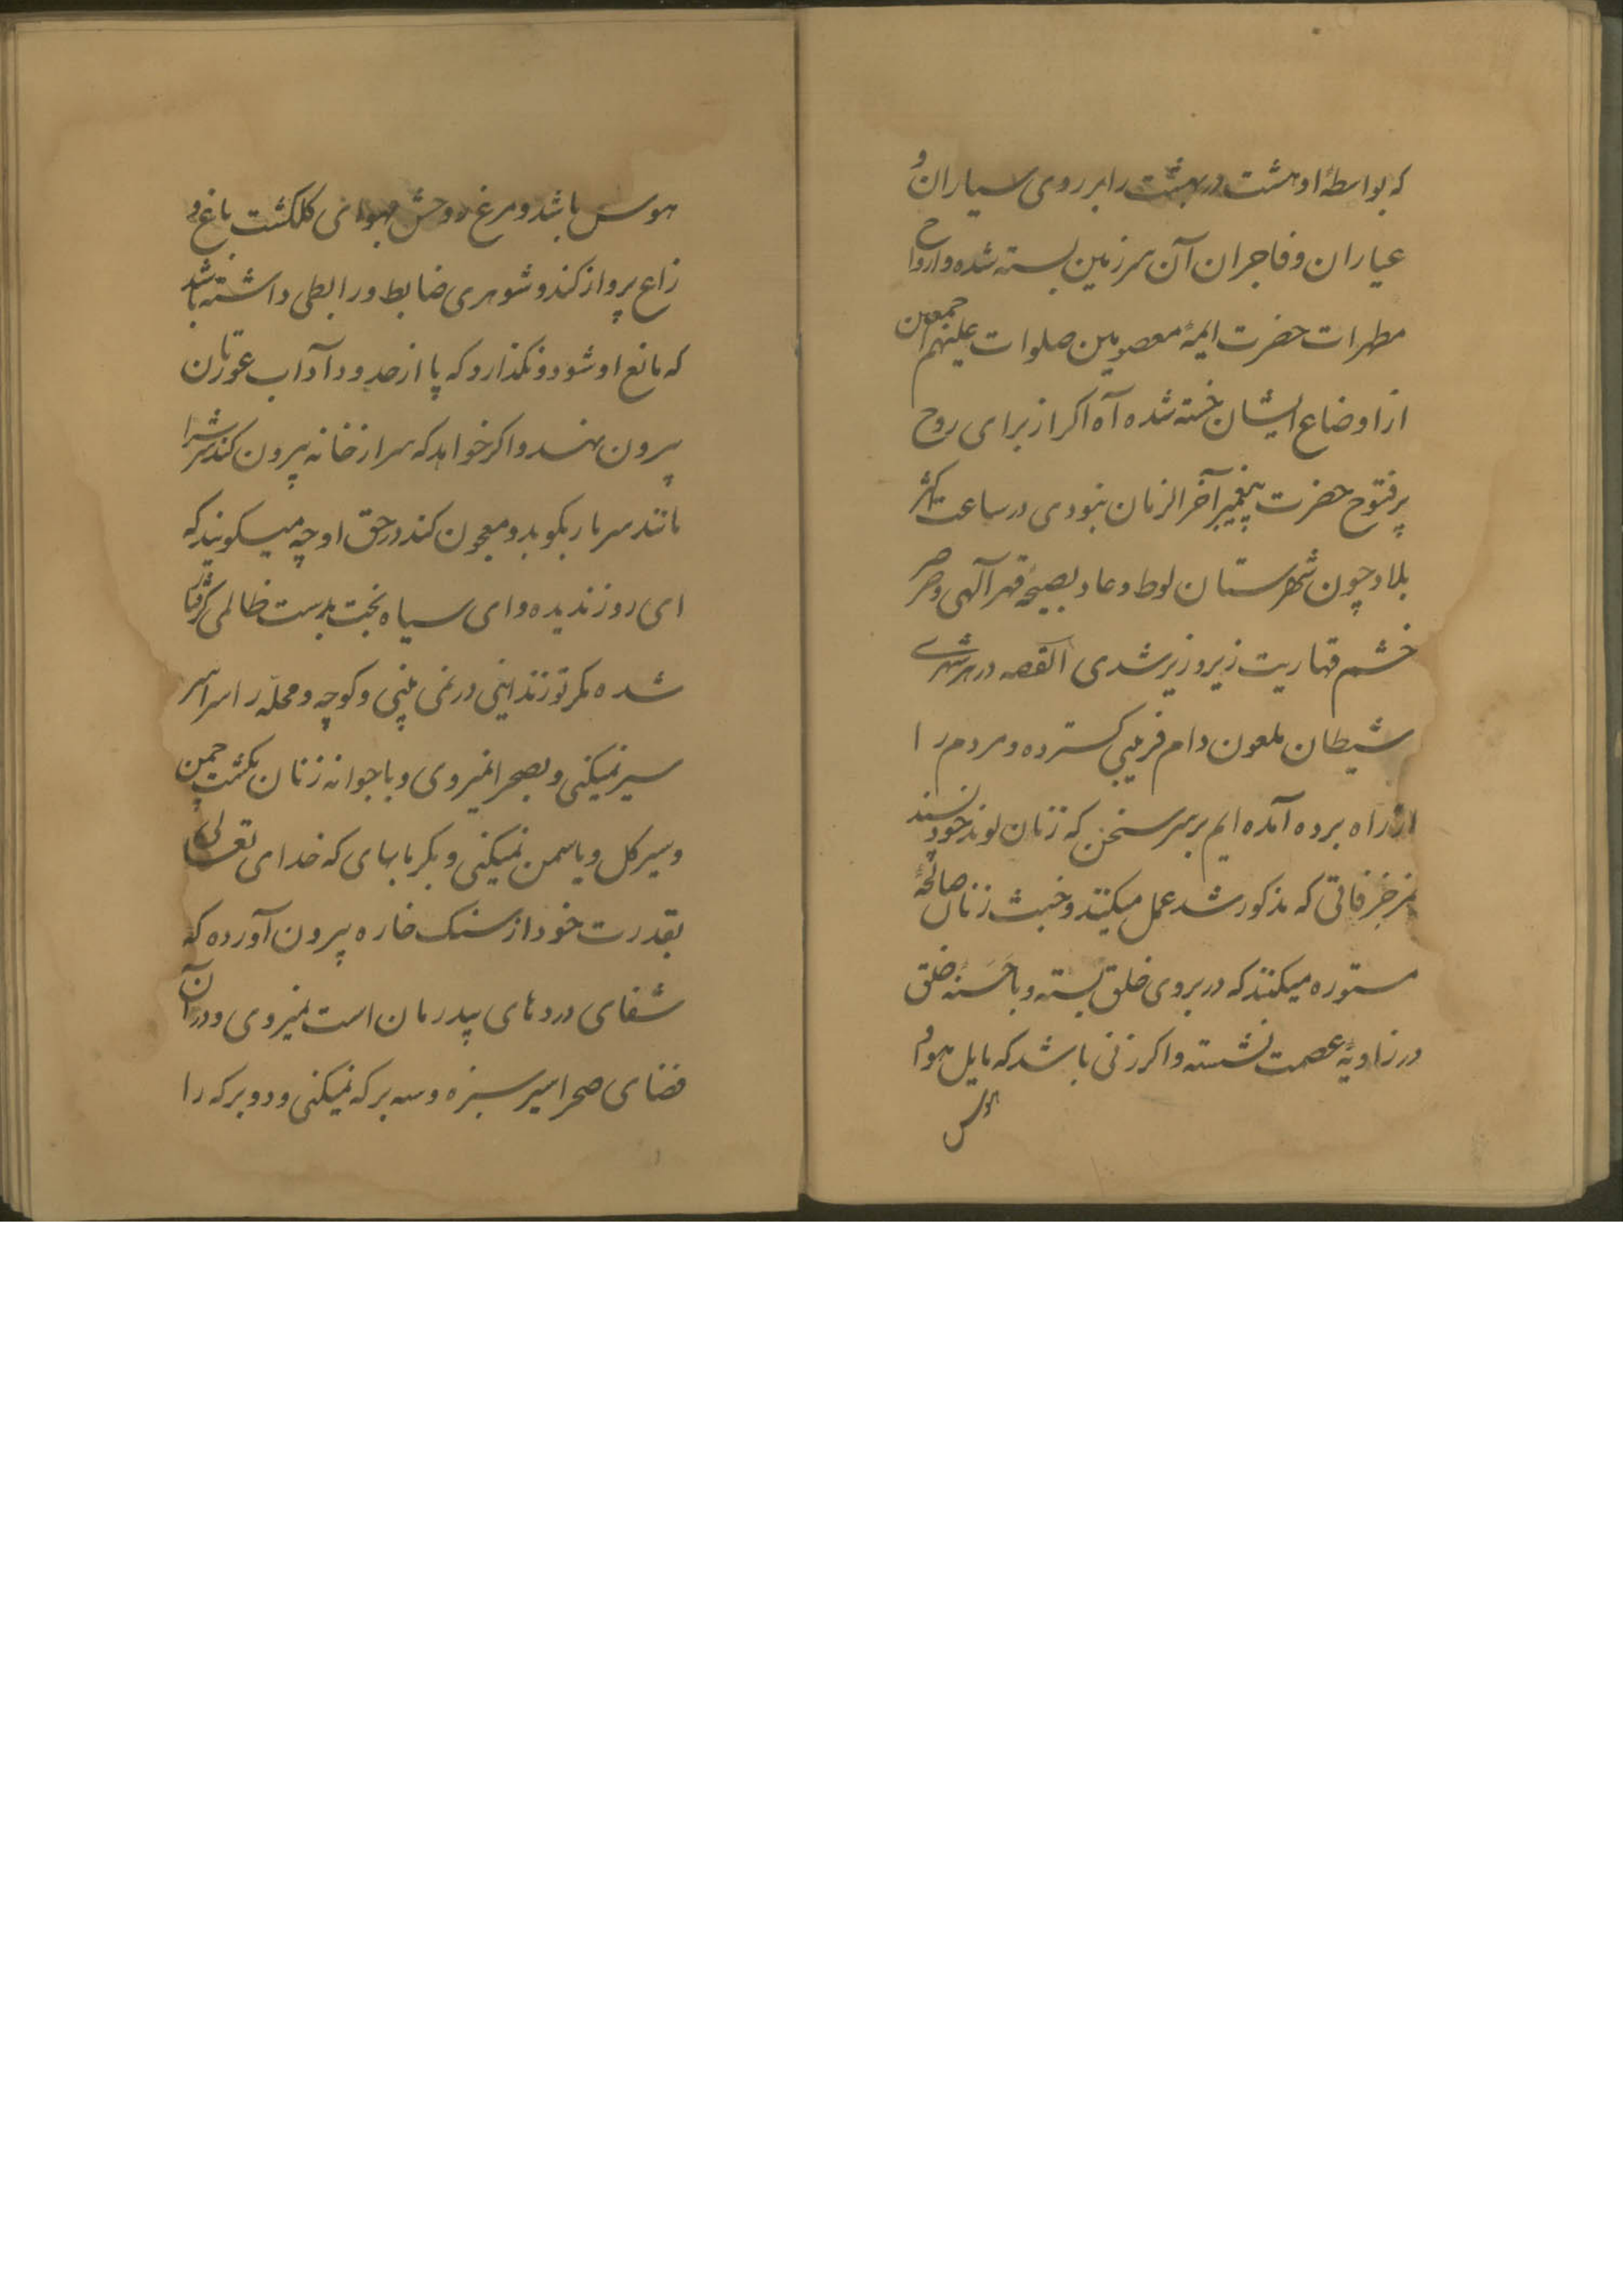 که بواسطهٔ او هشت در بهشت را بر روی سیاران و
عیاران و فاجران آن سرزمین بسته شده و ارواح
مطهرات حضرت ایمهٔ معصومین صلوات علیهم اجمعین
از اوضاع ایشان خسته شده آه اکر از برای روح
پر فتوح حضرت پیغمبر آخر الزمان نبودی در ساعت اکثر
بلاد چون شهرستان لوط و عاد بصیحهٔ قهر آلهی و صرصر
خشم قهاریت زیر و زبر شدی القصه در هر شهری
شیطان ملعون دام فریبی کسترده و مردم را
از راه برده آمده ایم بر سر سخن که زنان لوند خودپسند
مزخرفاتی که مذکور شد عمل میکنند و خبث زنان صالحهٔ
مستوره میکنند که در بروی خلق بسته و با حسنهٔ خلق
در زاویهٔ عصمت نشسته و اکر زنی باشد که مایل هوا و
هوس
هوس باشد و مرغ روحش بهوای کلکشت باغ و
زاغ پرواز کند و شوهری ضابط و رابطی داشته باشد
که مانع او شود و نکذارد که پا از حدود آداب عورتان
بیرون نهد و اکر خواهد که سر از خانه بیرون کند سرش را
مانند سر مار بکوبد و معجون کند در حق او چه میکویند که
ای روز ندیده و ای سیاه بخت بدست ظالمی کرفتار
شده مکر تو زندانیی در نمی بینی و کوچه و محله را سراسر
سیر نمیکنی و بصحرا نمیروی و با جوانه زنان بکشت چمن
و سیر کل و یاسمن نمیکنی و بکرمابهای که خدای تعالی
بقدرت خود از سنک خاره بیرون آورده که
شفای دردهای بیدرمان است نمیروی و در آن
فضای صحرا سیر سبزه و سه برکه نمیکنی و دو برکه را